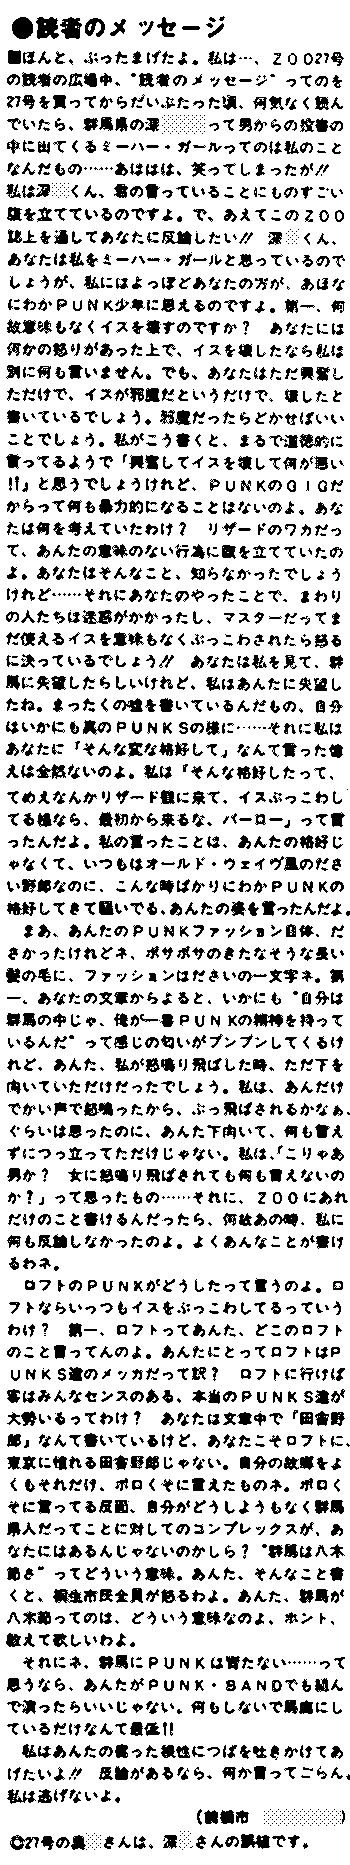 ●読者のメッセージ
■ほんと、ぶったまげたよ。私は…、ZOO27号
の読者の広場中、〝読者のメッセージ〟ってのを
27号を買ってからだいぶたった頃、何気なく読ん
でいたら、群馬県の深 って男からの投書の
中に出てくるミーハー・ガールってのは私のこと
なんだもの……あははは、笑ってしまったが!!
私は深 くん、君の言っていることにものすごい
腹を立てているのですよ。で、あえてこのZOO
誌上を通してあなたに反論したい!! 深 くん、
あなたは私をミーハー・ガールと思っているので
しょうが、私にはよっぽどあなたの方が、あほな
にわかPUNK少年に思えるのですよ。第一、何
故意味もなくイスを壊すのですか? あなたには
何かの怒りがあった上で、イスを壊したなら私は
別に何も言いません。でも、あなたはただ興奮し
ただけで、イスが邪魔だというだけで、壊したと
書いているでしょう。邪魔だったらどかせばいい
ことでしょう。私がこう書くと、まるで道徳的に
言ってるようで「興奮してイスを壊して何が悪い
!!」と思うでしょうけれど、PUNKのGIGだ
からって何も暴力的になることはないのよ。あな
たは何を考えていたわけ? リザードのワカだっ
て、あんたの意味のない行為に腹を立てていたの
よ。あなたはそんなこと、知らなかったでしょう
けれど……それにあなたのやったことで、まわり
の人たちは迷惑がかかったし、マスターだってま
だ使えるイスを意味もなくぶっこわされたら怒る
に決っているでしょう!! あなたは私を見て、群
馬に失望したらしいけれど、私はあんたに失望し
たね。まったくの嘘を書いているんだもの、自分
はいかにも真のPUNKSの様に……それに私は
あなたに「そんな変な格好して」なんて言った憶
えは全然ないのよ。私は「そんな格好したって、
てめえなんかリザード観に来て、イスぶっこわし
てる様なら、最初から来るな、バーロー」って言
ったんだよ。私の言ったことは、あんたの格好じ
ゃなくて、いつもはオールド・ウェイヴ風のださ
い野郎なのに、こんな時ばかりにわかPUNKの
格好してきて騒いでる、あんたの姿を言ったんだよ。
まあ、あんたのPUNKファッション自体、だ
さかったけれどネ、ボサボサのきたなそうな長い
髪の毛に、ファッションはださいの一文字ネ。第
一、あなたの文章からよると、いかにも〝自分は
群馬の中じゃ、俺が一番PUNKの精神を持って
いるんだ〟って感じの匂いがプンプンしてくるけ
れど、あんた、私が怒鳴り飛ばした時、ただ下を
向いていただけだったでしょう。私は、あんだけ
でかい声で怒鳴ったから、ぶっ飛ばされるかなぁ、
ぐらいは思ったのに、あんた下向いて、何も言え
ずにつっ立ってただけじゃない。私は、「こりゃあ
男か? 女に怒鳴り飛ばされても何も言えないの
か?」って思ったもの……それに、ZOOにあれ
だけのこと書けるんだったら、何故あの時、私に
何も反論しなかったのよ。よくあんなことが書け
るわネ。
ロフトのPUNKがどうしたって言うのよ。ロ
フトならいっつもイスをぶっこわしてるっていう
わけ? 第一、ロフトってあんた、どこのロフト
のこと言ってんのよ。あんたにとってロフトはP
UNKS達のメッカだって訳? ロフトに行けば
客はみんなセンスのある、本当のPUNKS達が
大勢いるってわけ? あなたは文章中で「田舎野
郎」なんて書いているけど、あなたこそロフトに、
東京に憧れる田舎野郎じゃない。自分の故郷をよ
くもそれだけ、ボロくそに言えたものネ。ボロく
そに言ってる反面、自分がどうしようもなく群馬
県人だってことに対してのコンプレックスが、あ
なたにはあるんじゃないのかしら? 〝群馬は八木
節さ〟ってどういう意味。あんた、そんなこと書
くと、桐生市民全員が怒るわよ。あんた、群馬が
八木節ってのは、どういう意味なのよ、ホント、
教えて欲しいわよ。
それにネ、群馬にPUNKは育たない……って
思うなら、あんたがPUNK・BANDでも組ん
で演ったらいいじゃない。何もしないで馬鹿にし
ているだけなんて最低!!
私はあんたの腐った根性につばを吐きかけてあ
げたいよ!! 反論があるなら、何か言ってごらん。
私は逃げないよ。
(前橋市 )
◎27号の奥 さんは、深 さんの誤植です。